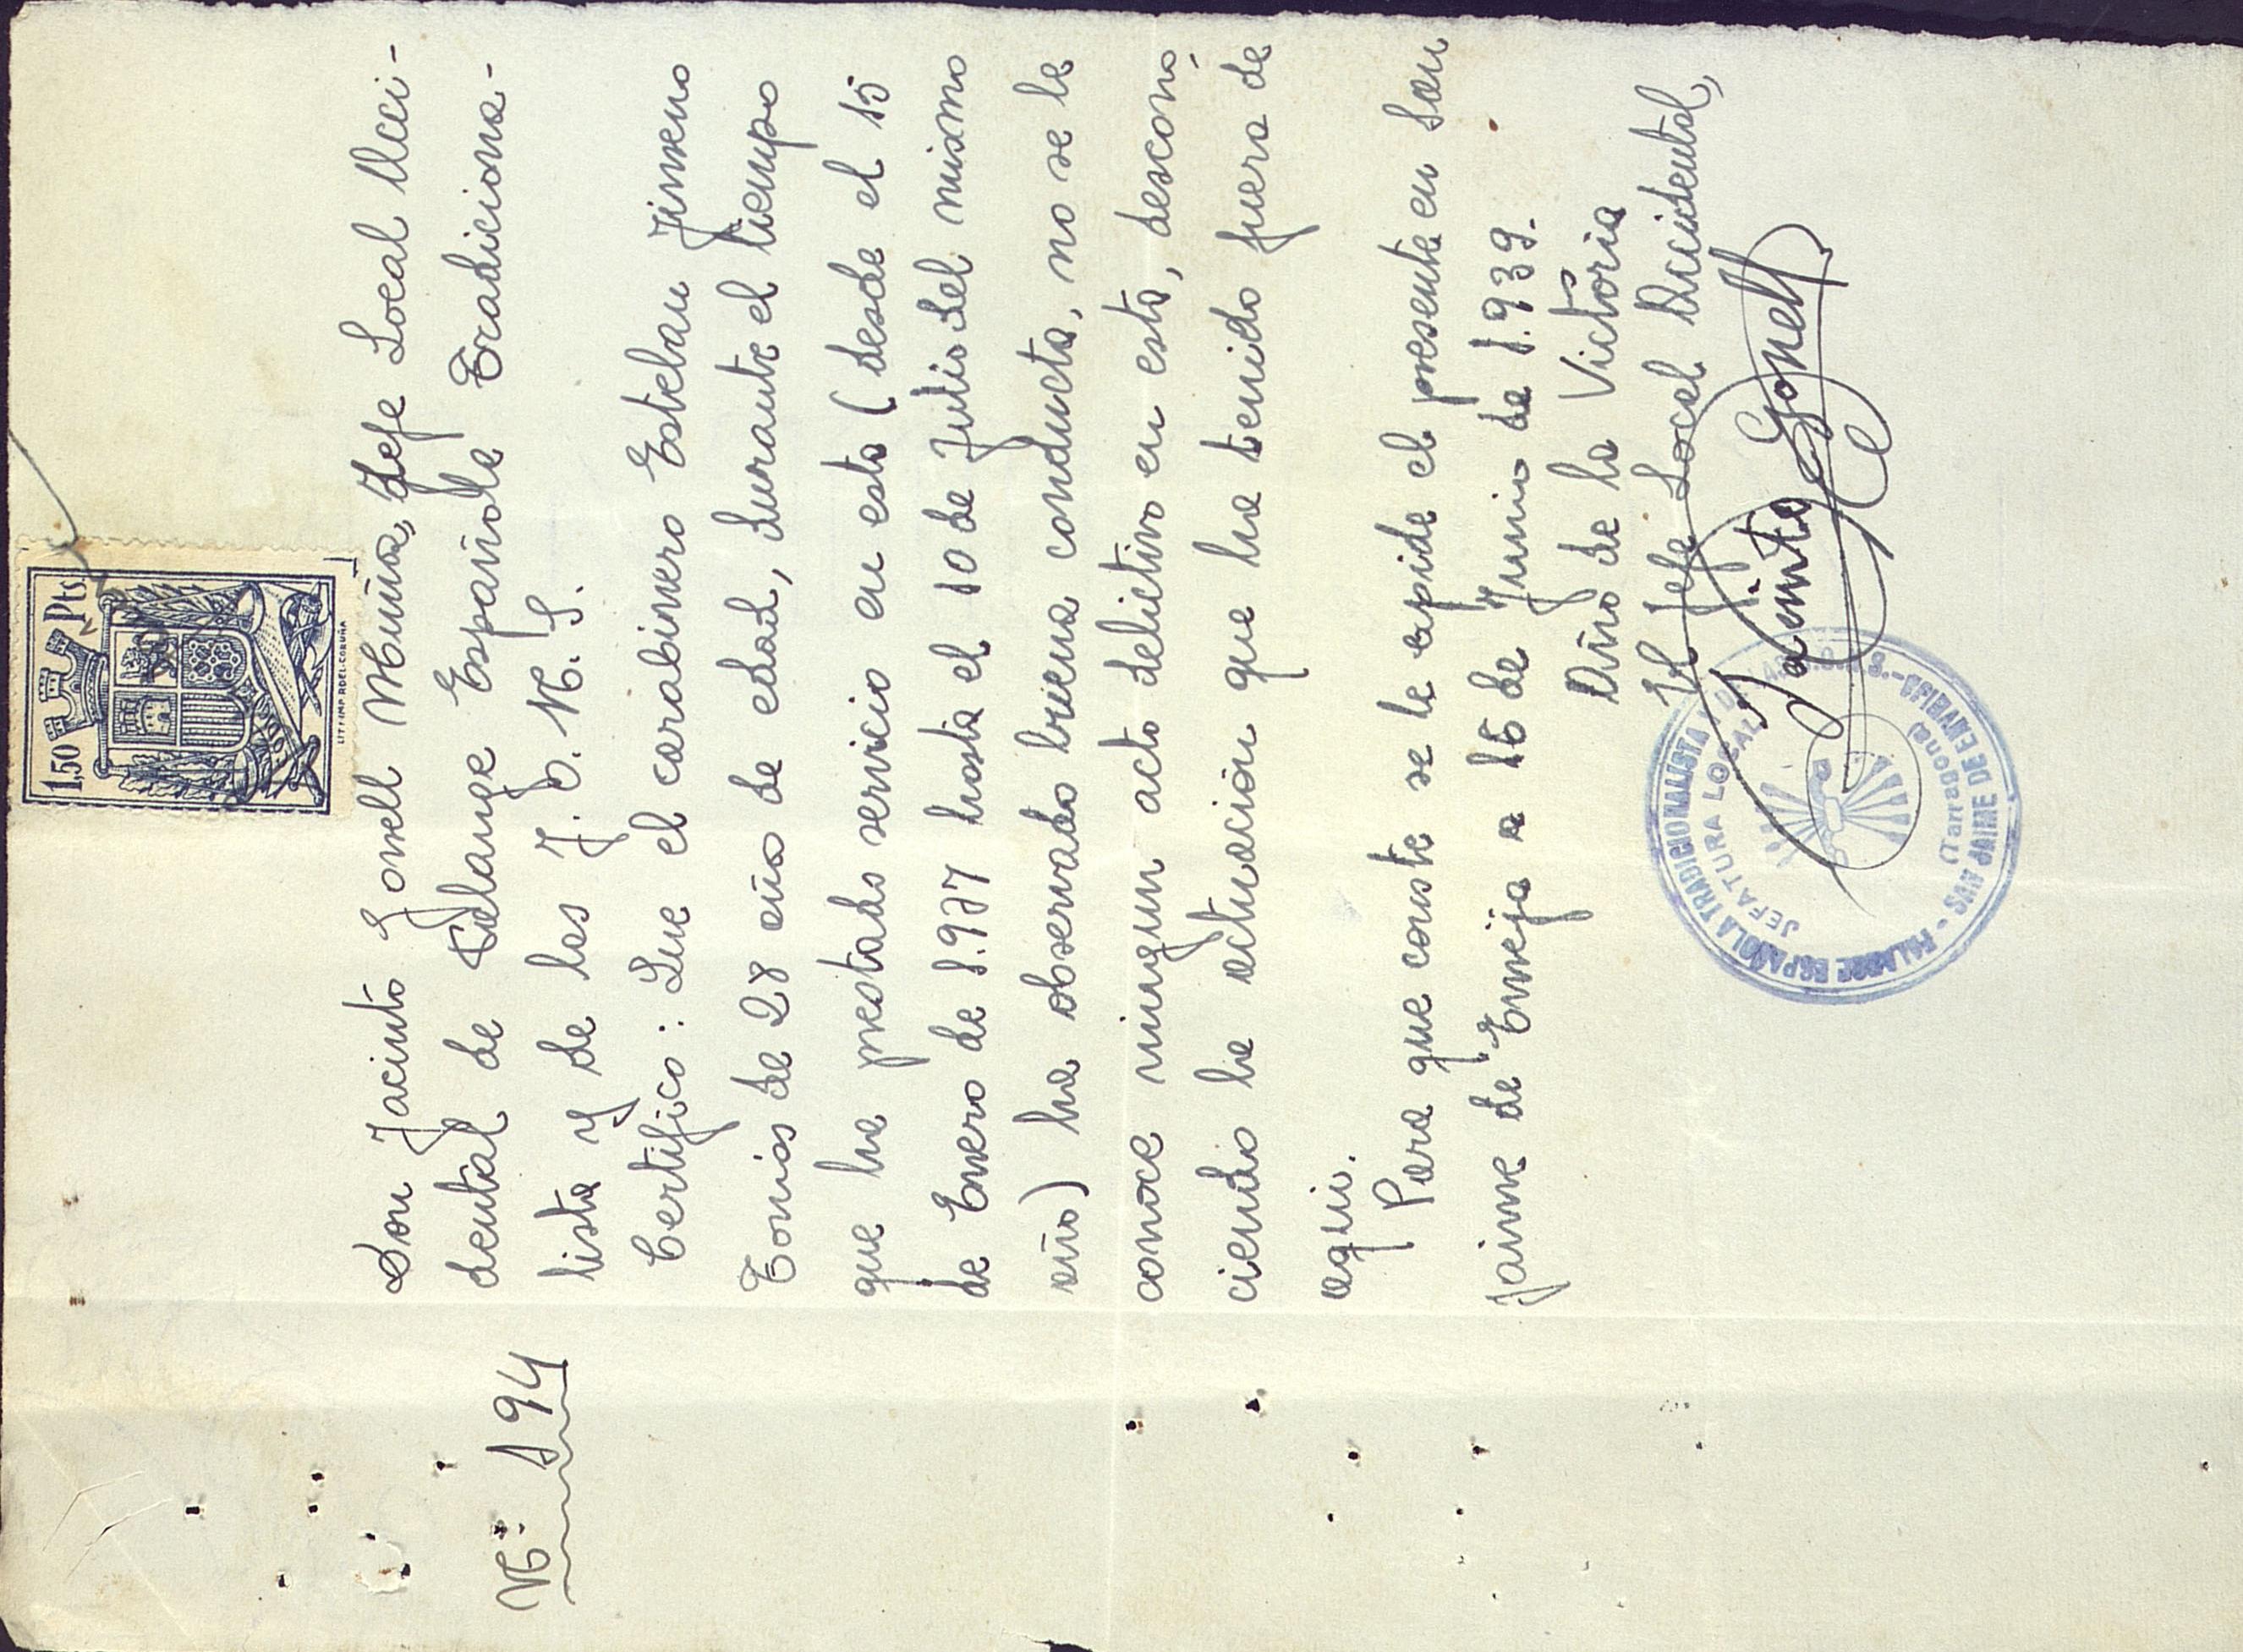 1,50 Pts
LIT e IMP. ROEL-CORUÑA
Nº 194
Don Jacinto Gonell Muñoa, Jefe Local Acci-
dental de Falange Española Tradiciona-
lista y de las J. O. N. S.
Certifico: Que el carabinero Esteban Jimeno
Tomás de 28 años de edad, durante el tiempo
que ha prestado servicio en esta (desde el 15
de Enero de 1.937 hasta el 10 de Julio del mismo
año) ha observado buena conducta, no se le
conoce ningun acto delictivo en esta, descono-
ciendo la actuación que ha tenido fuera de
aqui.
Para que conste se le expide el presente en San
Jaime de Enveija a 16 de Junio de 1.939.
Año de la Victoria
El Jefe Local Accidental,
Jacinto Gonell
FALANGE ESPAÑOLA TRADICIONALISTA
JEFATURA LOCAL
(Tarragona)
SAN JAIME DE ENVEIJA